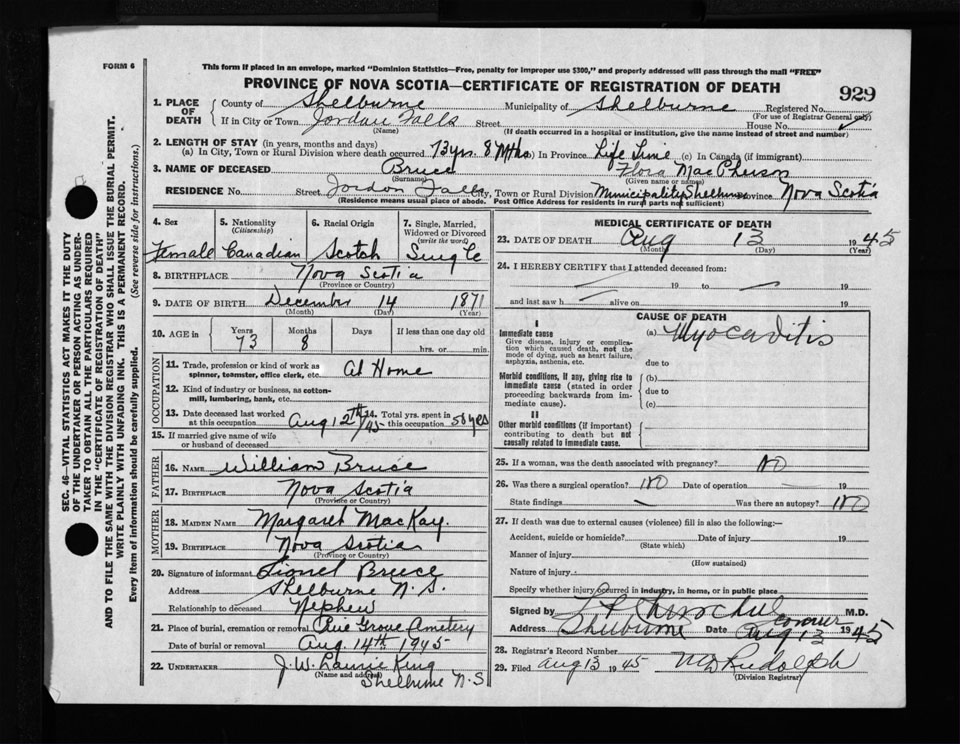 FORM 6
This form if placed in an envelope, marked "Dominion Statistics—Free, penalty for improper use $300," and properly addressed will pass through the mail "FREE"
PROVINCE OF NOVA SCOTIA—CERTIFICATE OF REGISTRATION OF DEATH
929
1. PLACE OF DEATH { County of Shelburne Municipality of Shelburne Registered No.
(For use of Registrar General only)
If in City or Town Jordan Falls Street House No.
(Name) (If death occurred in a hospital or institution, give the name instead of street and number)
2. LENGTH OF STAY (in years, months and days)
(a) In City, Town or Rural Division where death occurred 73 yrs 8 Mths (b) In Province Life Time (c) In Canada (if immigrant)
3. NAME OF DECEASED Bruce Flora MacPherson
(Surname) (Given name or names)
RESIDENCE No. Street Jordon Falls City, Town or Rural Division Municipality Shelburne Province Nova Scotia
(Residence means usual place of abode. Post Office Address for residents in rural parts not sufficient)
4. Sex 5. Nationality (Citizenship) 6. Racial Origin 7. Single, Married, Widowed or Divorced (write the word)
Female Canadian Scotch Single
8. BIRTHPLACE Nova Scotia
(Province or Country)
9. DATE OF BIRTH December 14 1871
(Month) (Day) (Year)
10. AGE in { Years Months Days If less than one day old
73 8 hrs. or min.
OCCUPATION
11. Trade, profession or kind of work as spinner, teamster, office clerk, etc. At Home
12. Kind of industry or business, as cotton-mill, lumbering, bank, etc.
13. Date deceased last worked at this occupation Aug 12th/45 14. Total yrs. spent in this occupation 50 yrs
15. If married give name of wife or husband of deceased
FATHER
16. NAME William Bruce
17. BIRTHPLACE Nova Scotia
(Province or Country)
MOTHER
18. MAIDEN NAME Margaret MacKay.
19. BIRTHPLACE Nova Scotia
(Province or Country)
20. Signature of informant Lionel Bruce
Address Shelburne N.S.
Relationship to deceased Nephew
21. Place of burial, cremation or removal Grove
Date of burial or removal Aug 14th 1945
22. UNDERTAKER J.W. Laurie King
(Name and address) Shelburne N.S
MEDICAL CERTIFICATE OF DEATH
23. DATE OF DEATH Aug 13 1945
(Month) (Day) (Year)
24. I HEREBY CERTIFY that I attended deceased from:
19 to 19
and last saw h alive on 19
CAUSE OF DEATH
I
Immediate cause (a) Myocarditis
Give disease, injury or complication which caused death, not the mode of dying, such as heart failure, asphyxia, asthenia, etc.
due to
Morbid conditions, if any, giving rise to immediate cause (stated in order proceeding backwards from immediate cause). (b)
due to
(c)
II
Other morbid conditions (if important) contributing to death but not causally related to immediate cause.
25. If a woman, was the death associated with pregnancy? No
26. Was there a surgical operation? No Date of operation 19
State findings Was there an autopsy? No
27. If death was due to external causes (violence) fill in also the following:—
Accident, suicide or homicide? Date of injury 19
(State which)
Manner of injury
(How sustained)
Nature of injury
Specify whether injury occurred in industry, in home, or in public place
Signed by M.D.
Coroner
Address Shelburne Date Aug 13 1945
28. Registrar's Record Number
29. Filed Aug 13 1945 Rudolph
(Division Registrar)
SEC. 46—VITAL STATISTICS ACT MAKES IT THE DUTY
OF THE UNDERTAKER OR PERSON ACTING AS UNDER-
TAKER TO OBTAIN ALL THE PARTICULARS REQUIRED
IN THE "CERTIFICATE OF REGISTRATION OF DEATH"
AND TO FILE THE SAME WITH THE DIVISION REGISTRAR WHO SHALL ISSUE THE BURIAL PERMIT.
WRITE PLAINLY WITH UNFADING INK. THIS IS A PERMANENT RECORD.
Every item of information should be carefully supplied. (See reverse side for instructions.)